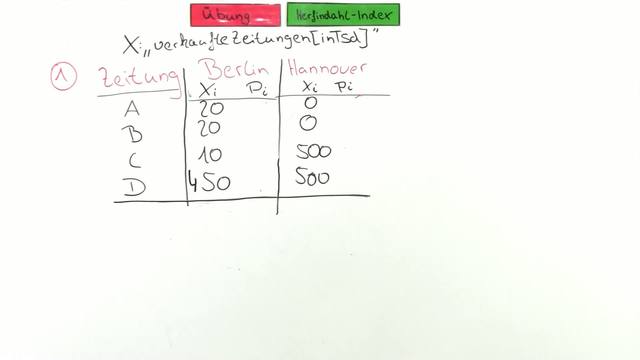 Übung Herfindahl-Index
X: „verkaufte Zeitungen [in Tsd]"
1 Zeitung Berlin Hannover
Xi Pi Xi Pi
A 20 0
B 20 0
C 10 500
D 450 500